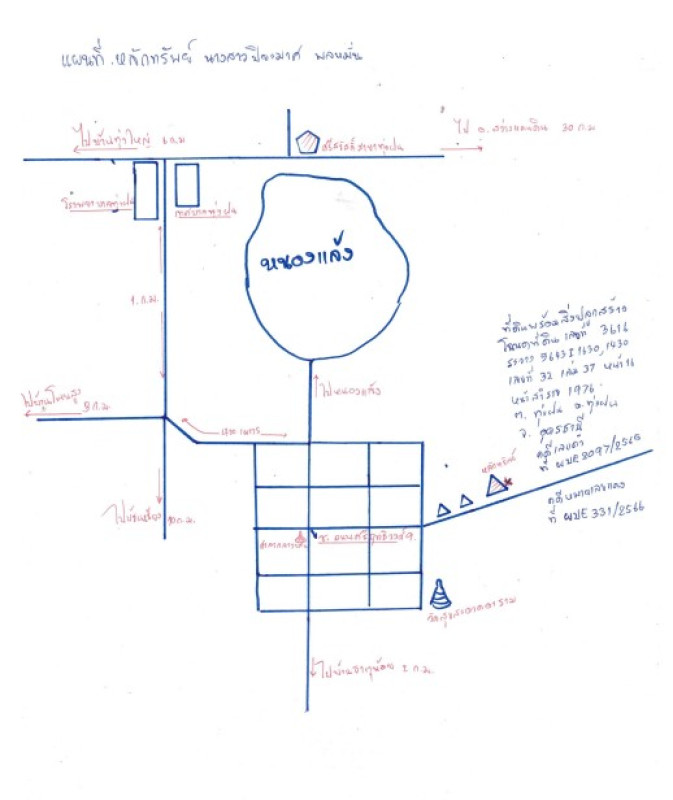 แผนที่ หลักทรัพย์ นางสาวปิยะมาศ พลหมั่น
ไปบ้านทุ่งใหญ่ 6 ก.ม
ไป อ.สว่างแดนดิน 30 ก.ม
ทุ่งฝน
โรงพยาบาลทุ่งฝน
เทศบาลทุ่งฝน
หนองแล้ง
1 ก.ม.
ที่ดินพร้อมสิ่งปลูกสร้าง
โฉนดที่ดิน เลขที่ 3616
ระวาง 5643 I 1630, 1430
เลขที่ 32 เล่ม 37 หน้า 16
หน้าสำรวจ 1976
ต. ทุ่งฝน อ. ทุ่งฝน
จ. อุดรธานี
คดีเลขดำ
ที่ ผบE 2097/2565
ไปหนองแล้ง
8 ก.ม
เมตร
หลักทรัพย์
คดีหมายเลขแดง
ที่ ผบE 331/2566
ไปบ้านเชียง 10 ก.ม.
ศาลากลางบ้าน
ไปบ้านธาตุน้อย 2 ก.ม.